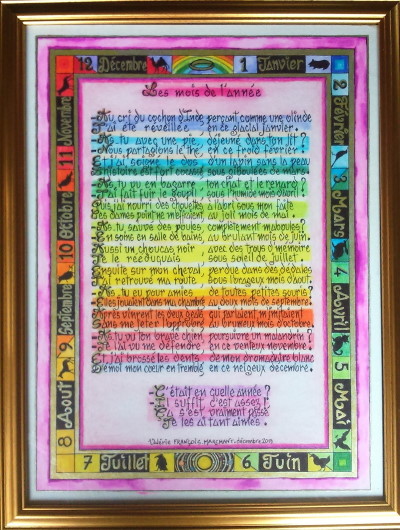 12 Décembre
1 Janvier
2 Février
3 Mars
4 Avril
5 Mai
6 Juin
7 Juillet
8 Août
9 Septembre
10 Octobre
11 Novembre
Les mois de l'année
Au cri du cochon d'Inde perçant comme une
J'ai été réveillée en ce glacial janvier.
As-tu avec une pie, déjeuné dans ton lit ?
Nous partagions le thé en ce frolo février !
Et j'ai soigné le dos d'un lapin sans la peau
Histoire est fort cocasse sous giboulées de mars.
As-tu vu en bagarre ton chat et le renard ?
J'ai fait fuir le goupil sous l'humide mois d'avril.
Puis j'ai nourri des chouettes à l'abri sous mon faîte
Ces dames point ne mijotaient, au joli mois de mai.
As-tu sauvé des poules complètement maboules ?
En soins en salle de bains, au brûlant mois de juin.
Aussi un choucas noir avec des trous d'mémoire
Je le rééduquais sous soleil de juillet.
Ensuite sur mon cheval, perdue dans des dédales
J'ai retrouvé ma route sous l'orageux mois d'août.
As-tu eu pour amies de toutes petites souris ?
Elles jouaient dans ma chambre au doux mois de septembre.
Après vinrent les deux geais qui parlaient, m'imitaient
Sans me jeter l'opprobre au brumeux mois d'octobre.
As-tu vu ton brave chien poursuivre un malandrin ?
Je l'ai vu me défendre en ce venteux novembre.
Et j'ai brossé les dents de mon dromadaire blanc
Demoi mon coeur en tremble en ce neigeux décembre.
C'était en quelle année ?
Il suffit, c'est assez !
Ça s'est vraiment passé
Je les ai tant aimés.
Valérie FRANÇOIS MARCHANT. décembre